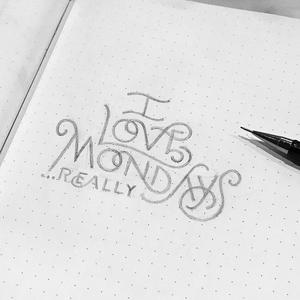 I
LOVE
MONDAYS
...REALLY